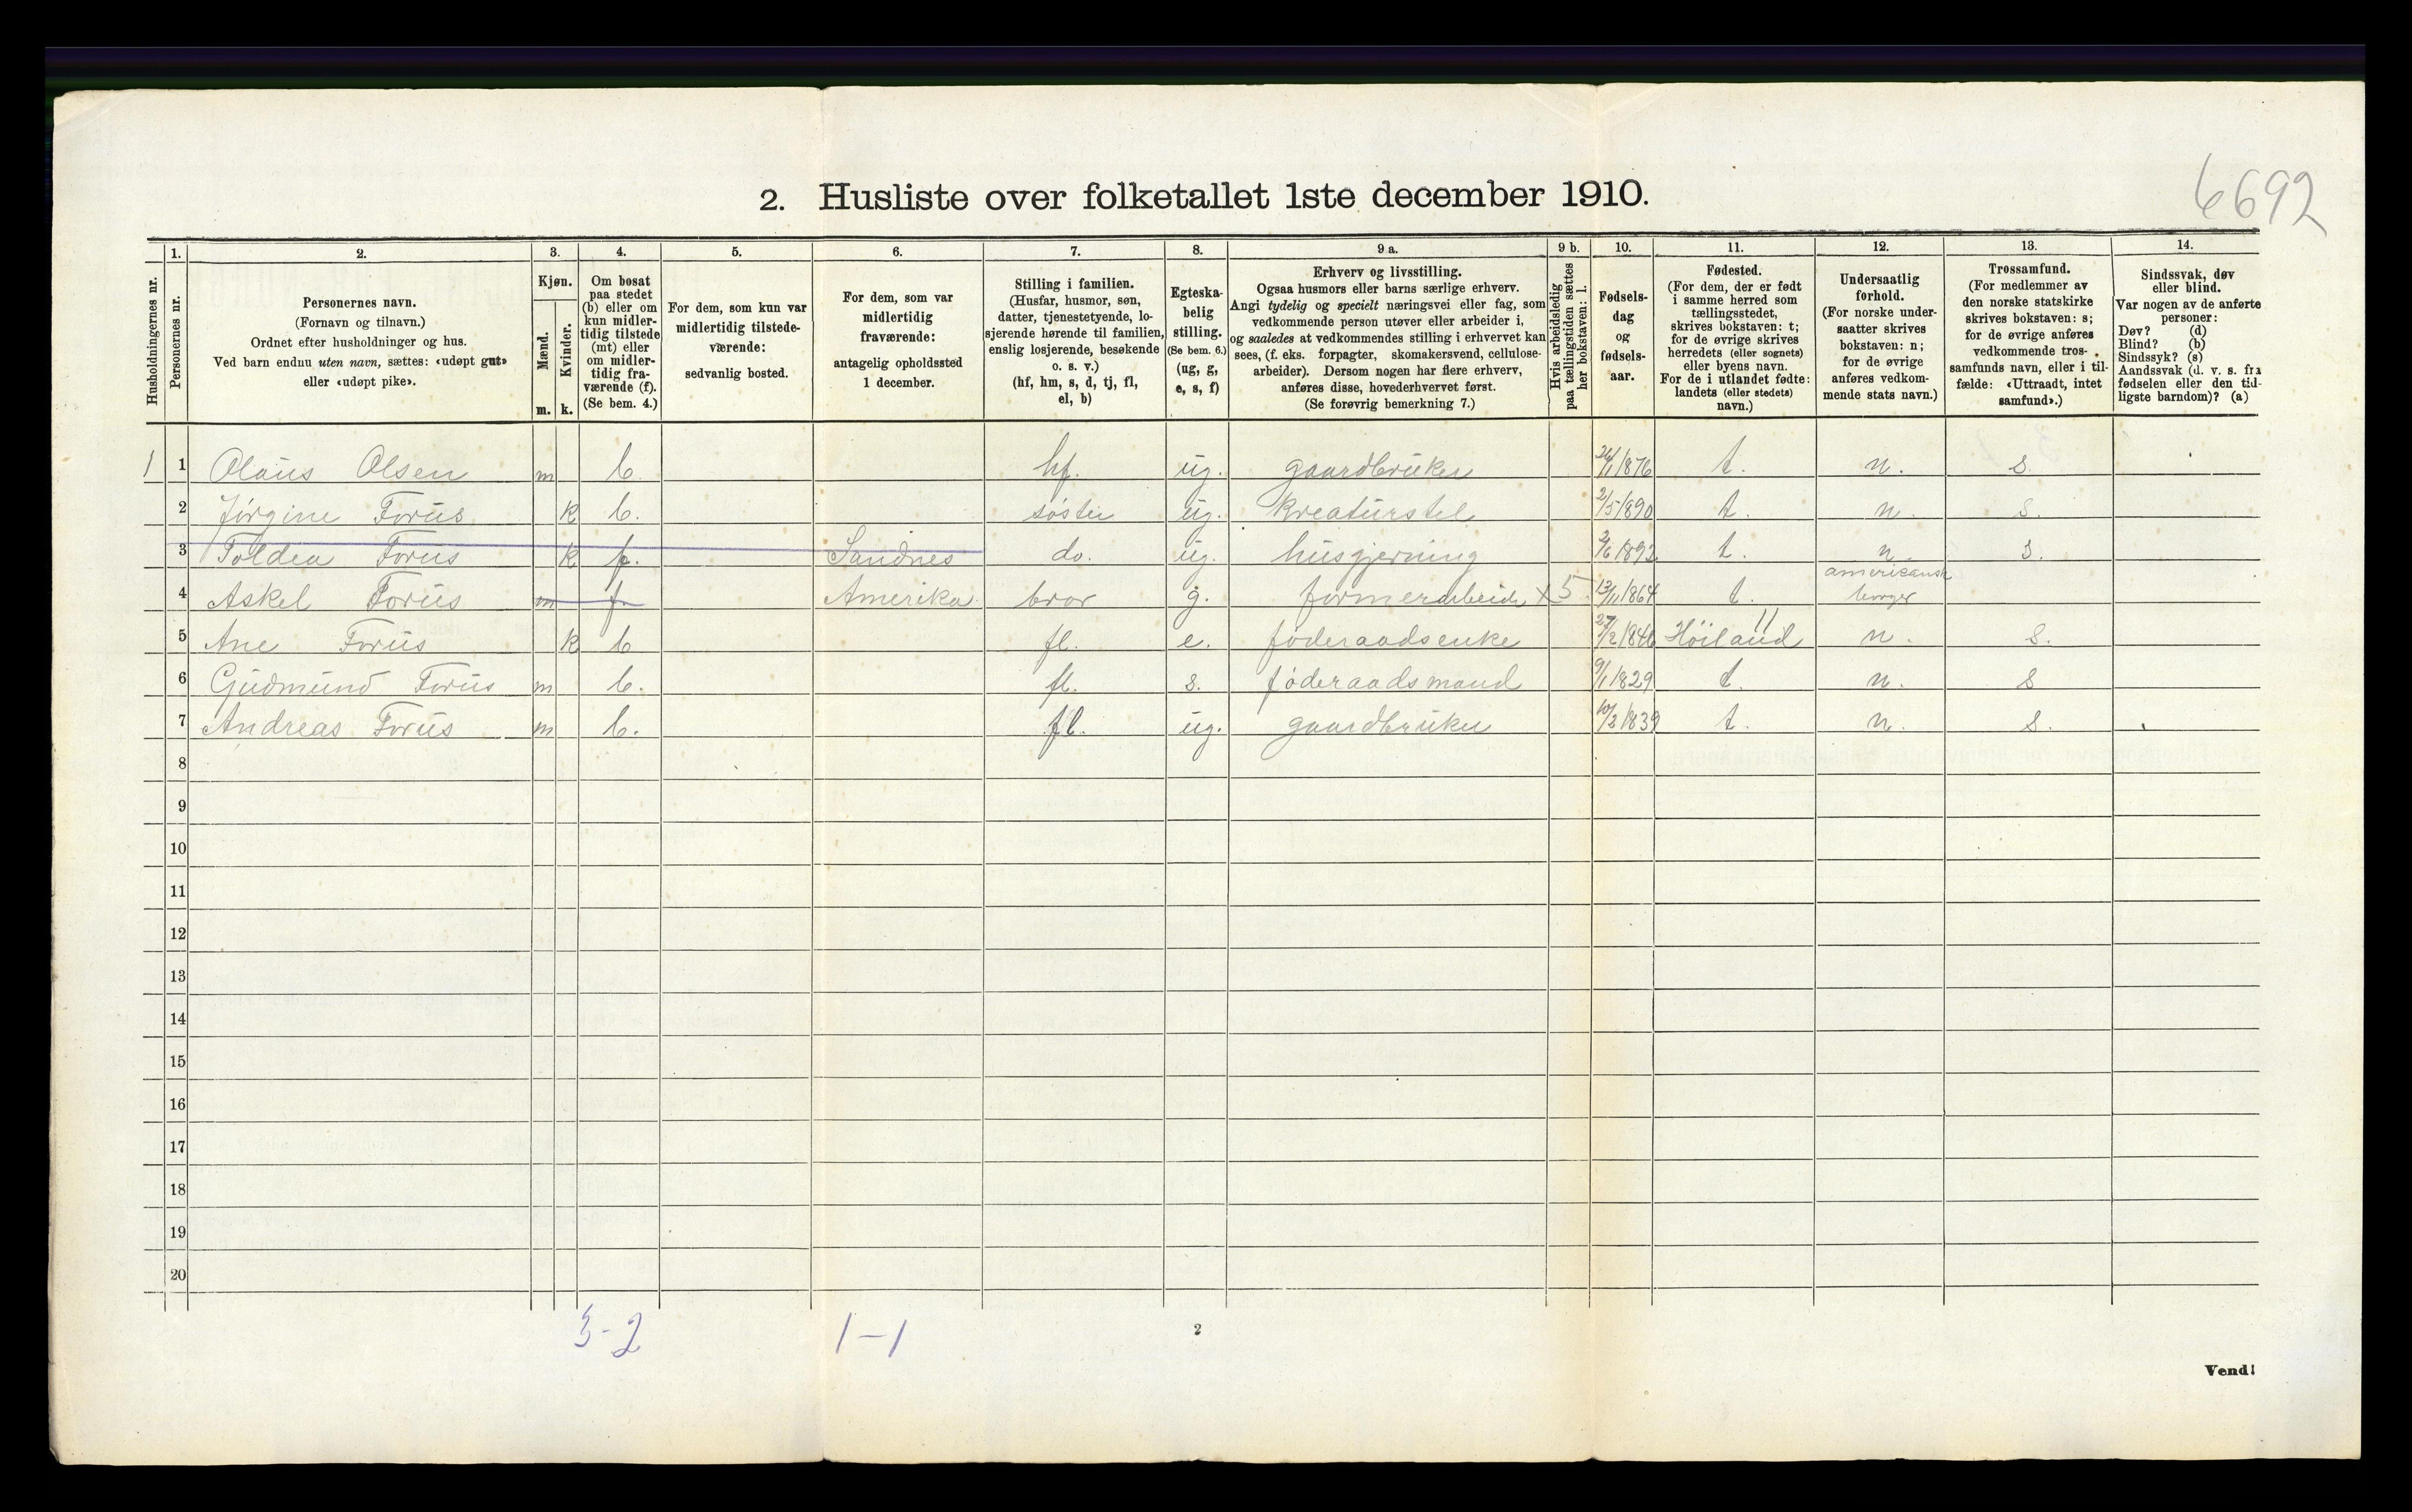 6692
2. Husliste over folketallet 1ste december 1910.
Husholdningernes nr.
1. Personernes nr.
2. Personernes navn.
(Fornavn og tilnavn.)
Ordnet efter husholdninger og hus.
Ved barn endnu uten navn, sættes: «udøpt gut»
eller «udøpt pike».
3. Kjøn.
Mænd. m.
Kvinder. k.
4. Om bosat
paa stedet
(b) eller om
kun midler-
tidig tilstede
(mt) eller
om midler-
tidig fra-
værende (f).
(Se bem. 4.)
5. For dem, som kun var
midlertidig tilstede-
værende:
sedvanlig bosted.
6. For dem, som var
midlertidig
fraværende:
antagelig opholdssted
1 december.
7. Stilling i familien.
(Husfar, husmor, søn,
datter, tjenestetyende, lo-
sjerende hørende til familien,
enslig losjerende, besøkende
o. s. v.)
(hf, hm, s, d, tj, fl,
el, b)
8. Egteska-
belig
stilling.
(Se bem. 6.)
(ug, g,
e, s, f)
9 a. Erhverv og livsstilling.
Ogsaa husmors eller barns særlige erhverv.
Angi tydelig og specielt næringsvei eller fag, som
vedkommende person utøver eller arbeider i,
og saaledes at vedkommendes stilling i erhvervet kan
sees, (f. eks. forpagter, skomakersvend, cellulose-
arbeider). Dersom nogen har flere erhverv,
anføres disse, hovederhvervet først.
(Se forøvrig bemerkning 7.)
9 b. Hvis arbeidsledig
paa tællingstiden sættes
her bokstaven: l.
10. Fødsels-
dag
og
fødsels-
aar.
11. Fødested.
(For dem, der er født
i samme herred som
tællingsstedet,
skrives bokstaven: t;
for de øvrige skrives
herredets (eller sognets)
eller byens navn.
For de i utlandet fødte:
landets (eller stedets)
navn.)
12. Undersaatlig
forhold.
(For norske under-
saatter skrives
bokstaven: n;
for de øvrige
anføres vedkom-
mende stats navn.)
13. Trossamfund.
(For medlemmer av
den norske statskirke
skrives bokstaven: s;
for de øvrige anføres
vedkommende tros-
samfunds navn, eller i til-
fælde: «Uttraadt, intet
samfund».)
14. Sindssvak, døv
eller blind.
Var nogen av de anførte
personer:
Døv? (d)
Blind? (b)
Sindssyk? (s)
Aandssvak (d. v. s. fra
fødselen eller den tid-
ligste barndom)? (a)
1 1 Olaus Olsen m b. hf. ug. gaardbruker 1876 t. n. s.
2 Jørgine Forus k b. søster ug. kreaturstel 2/5 1890 t. n. s.
3 Toldea Forus k f. Sandnes do. ug. husgjerning 1892 t. n. s.
4 Askel Forus m f Amerika bror g. farmerarbeide x 5. 13/11 1864 t. amerikansk
borger
5 Ane Forus k b fl. e. føderaadsenke 27/2 1846 Höiland 11 n. s.
6 Gudmund Forus m b. fl. s. føderaadsmand 9/1 1829 t. n. s
7 Andreas Forus m b. fl. ug. gaardbruker 1839 t. n. s.
8
9
10
11
12
13
14
15
16
17
18
19
20
3-2 1-1
2
Vend!